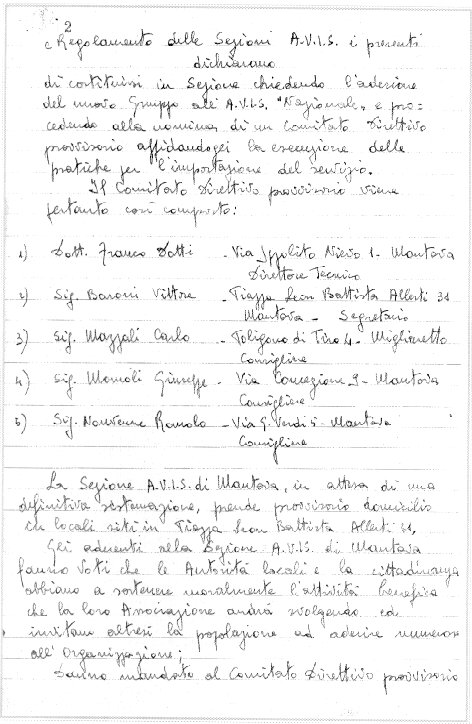 2
Regolamento delle Sezioni A.V.I.S. i presenti
dichiarano
di costituirsi in Sezione chiedendo l'adesione
del nuovo Gruppo all'A.V.I.S. "Nazionale, e pro=
cedendo alla nomina di un Comitato Direttivo
provvisorio affidandogli la esecuzione delle
pratiche per l'impostazione del servizio.
Il Comitato Direttivo provvisorio viene
pertanto così composto:
1) Dott. Franco Dotti - Via Ippolito Nievo 1 - Mantova
Direttore Tecnico
2) Sig. Baroni Vittore - Piazza Leon Battista Alberti 31
Mantova - Segretario
3) Sig. Mazzali Carlo - Poligono di Tiro 4 - Miglioretto
Consigliere
4) Sig. Momoli Giuseppe - Via Concezione 9 - Mantova
Consigliere
5) Sig. Romolo - Via G. Verdi 5 - Mantova
Consigliere
La Sezione A.V.I.S. di Mantova, in attesa di una
definitiva sistemazione, prende provvisorio domicilio
in locali siti in Piazza Leon Battista Alberti 31,
Gli aderenti alla Sezione A.V.I.S. di Mantova
fanno voti che le Autorità locali e la cittadinanza
abbiano a sostenere moralmente l'attività benefica
che la loro Associazione andrà svolgendo ed
invitano altresì la popolazione ad aderire numerosa
all'Organizzazione;
Danno mandato al Comitato Direttivo provvisorio